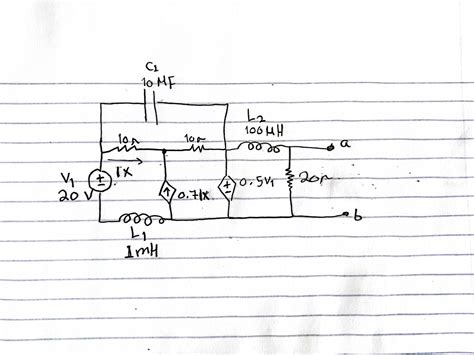 C1
10 MF
L2
100 MH
10Ω
10Ω
a
Ix
V1
20 V
0.7Ix
0.5V1
20Ω
b
L1
1mH